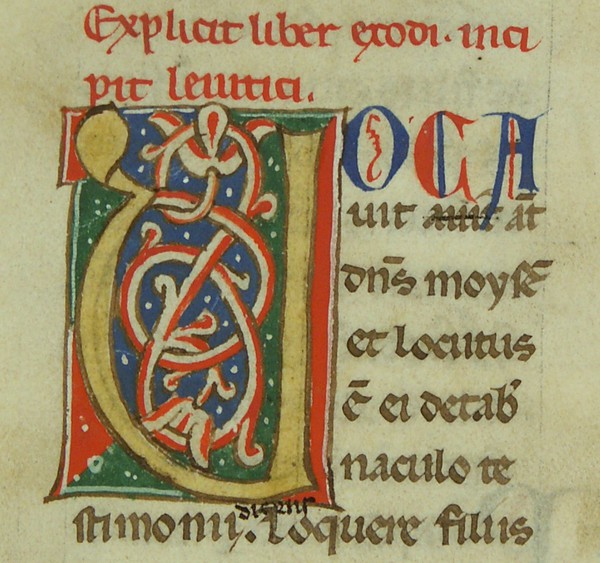 Explicit liber exodi. inci
pit leuitici.
UOCA
uit autē at̄
dn̄s moysē
et locutus
ē ei de tab̾
naculo te
dicens
stimonij. Loquere filiis